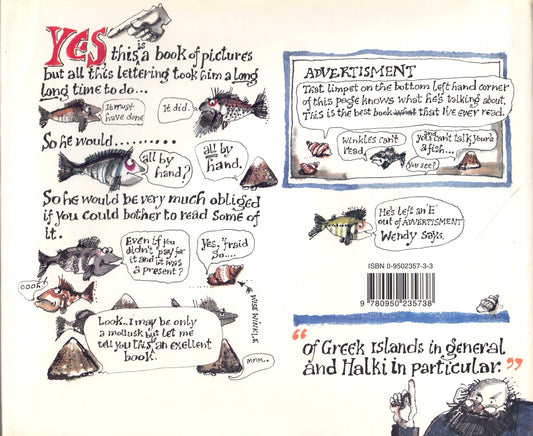 YES, this is a book of pictures
but all this lettering took him a long
long time to do...
It must
have done
It did.
So he would..........
all by
hand?
all by
hand.
So he would be very much obliged
if you could bother to read some of
it.
Even if you
didn't pay for
it and it was
a present?
Yes, 'fraid
so....
OOOH!
WISE WINKLE
Look.. I may be only
a mollusk but let me
tell you this is an exellent
book.
MMM..
ADVERTISMENT
That limpet on the bottom left hand corner
of this page knows what he's talking about.
This is the best book what that I've ever read.
Winkles can't
read
and you can't talk, you're
a fish...
You see?
He's left an 'E'
out of ADVERTISMENT
Wendy says.
ISBN 0-9502357-3-3
9 780950 235738
“of Greek Islands in general
and Halki in particular.”